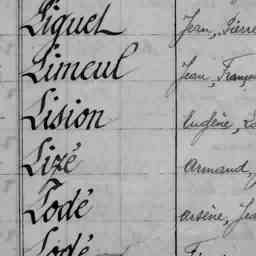 Liguel Jean, Pierre
Limeul Jean, Franço
Lision Eugène, L
Lizé Armand, J
Lodé Arsène, Jea
Lodé